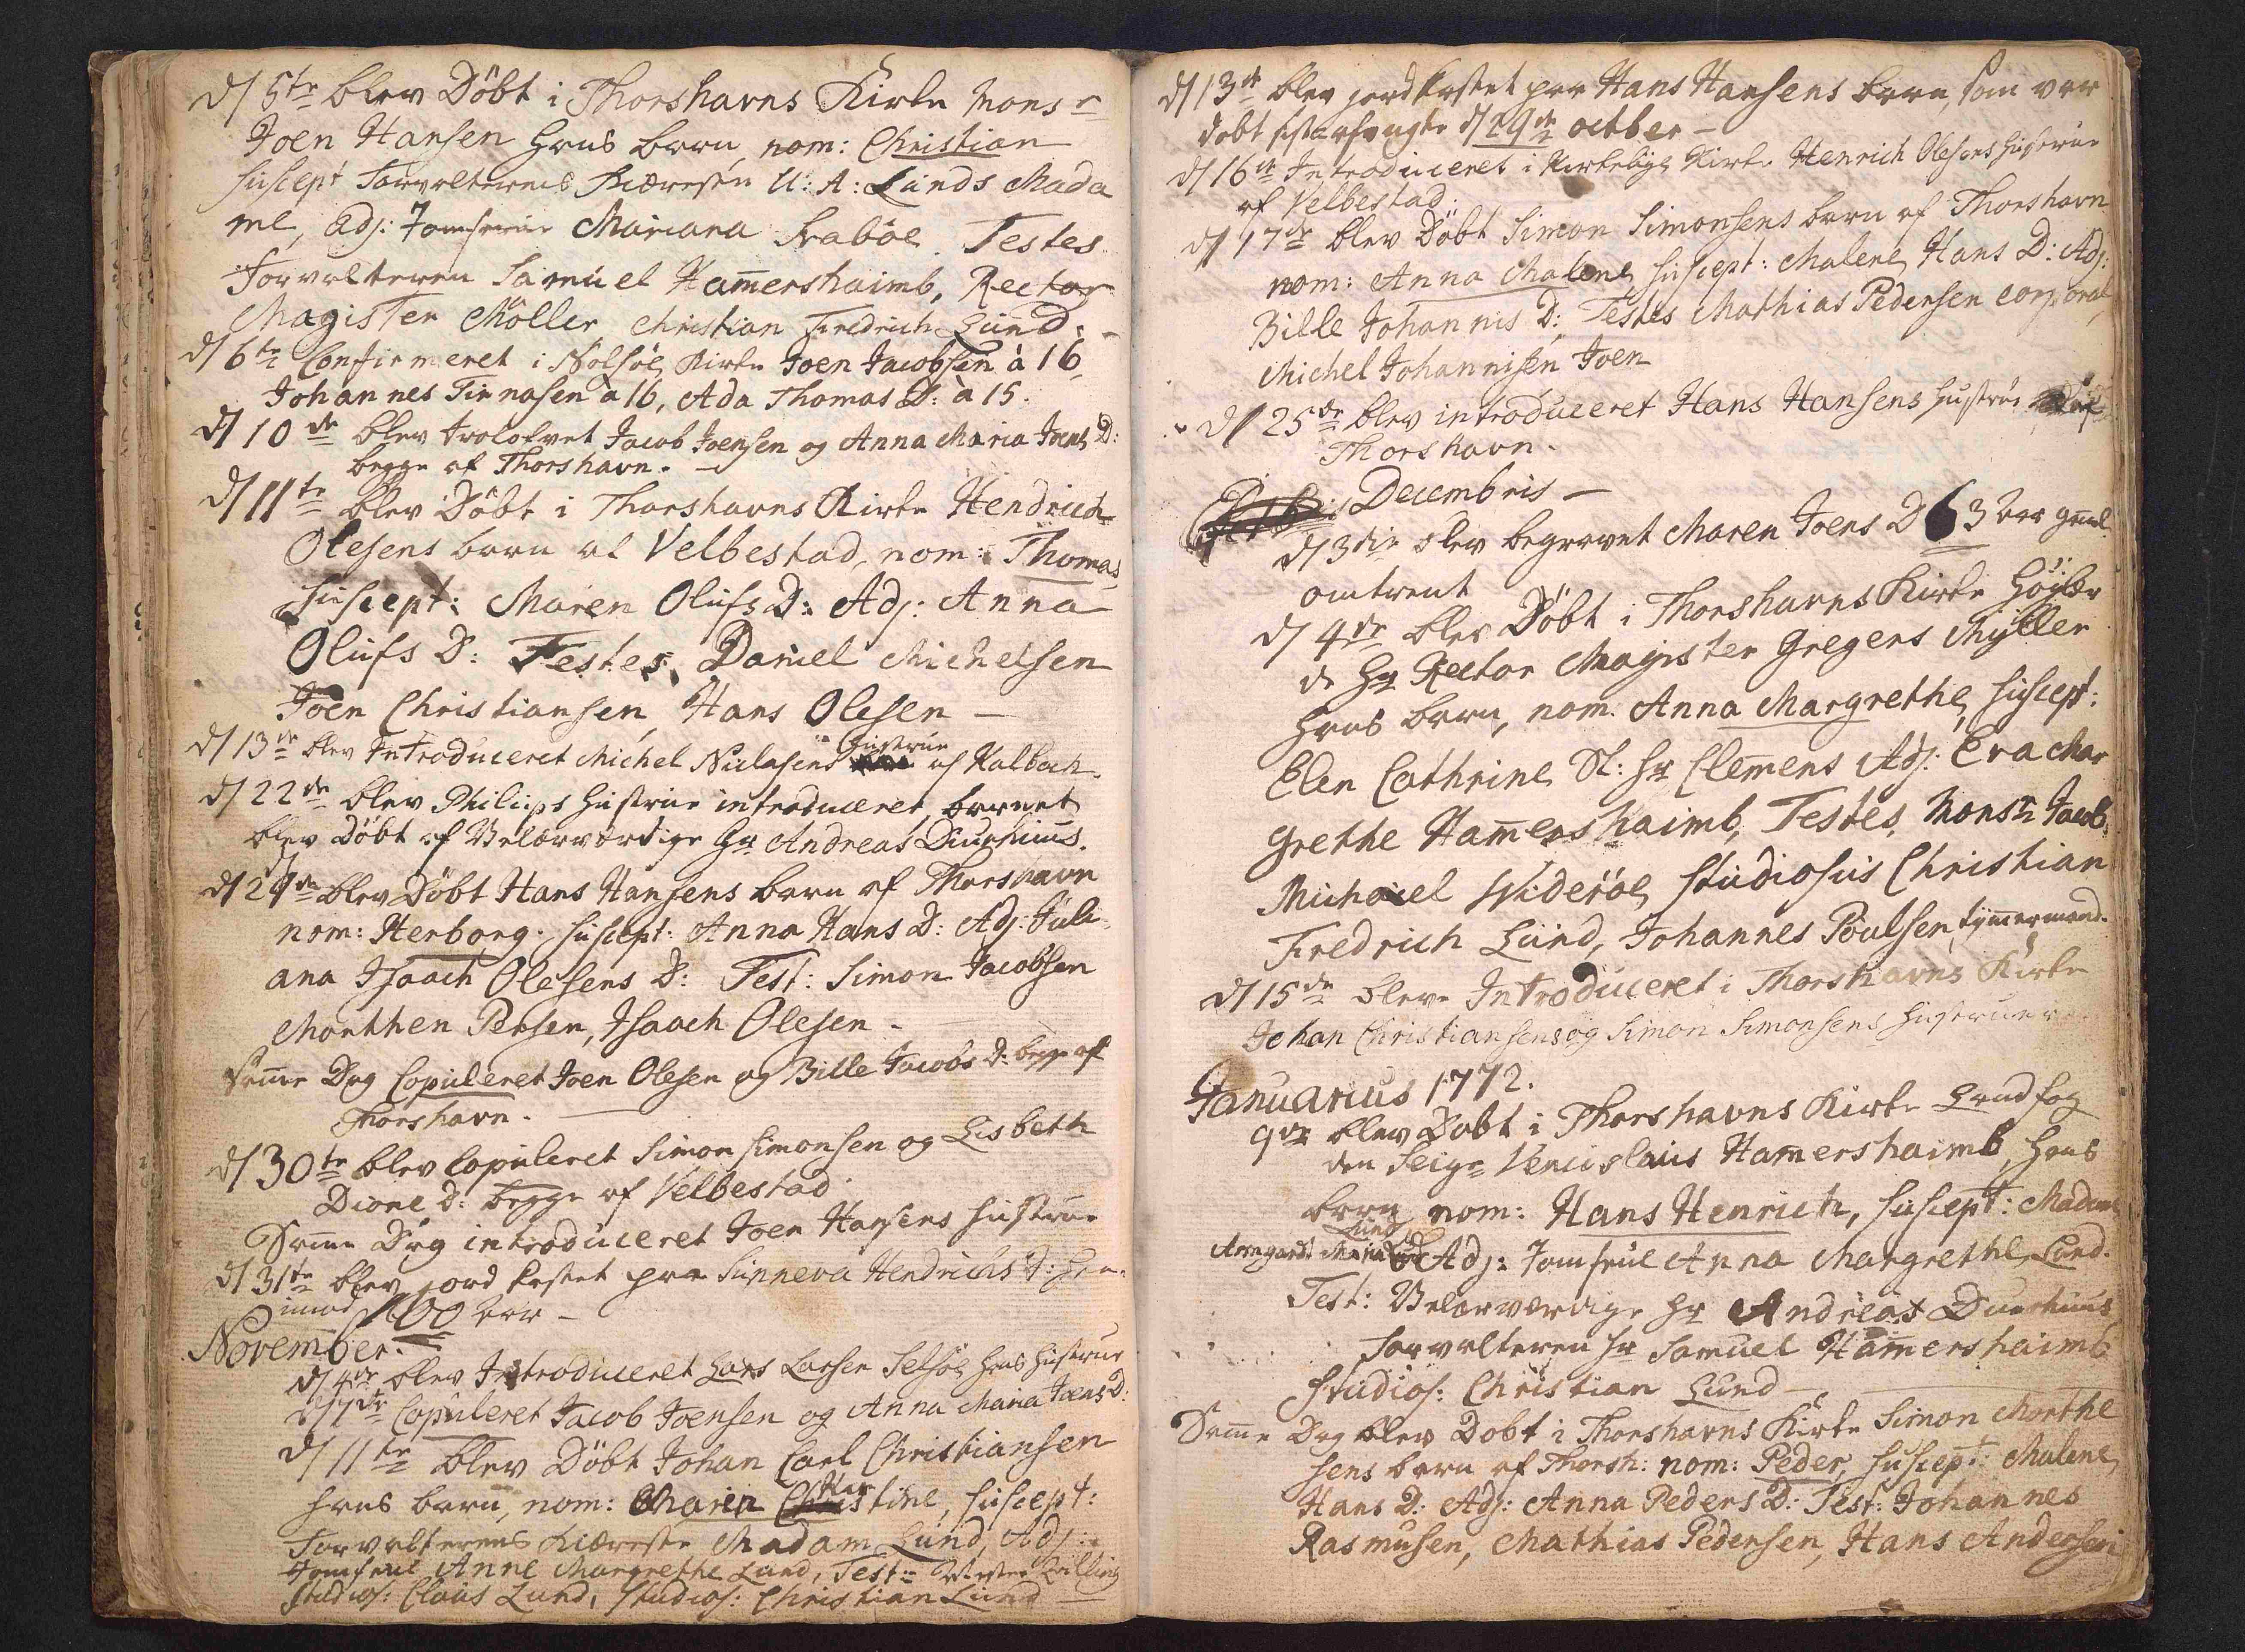 d/ 5te blev Döbt i Thorshavns Kirke Monsr
Joen Hansen hans barn nom: Christian
suscept Forvalterens Kiæresten U: A: Lunds Mada
me, Adj: Jomfrue Mariana Svaböe Testes
Forvalteren Samuel Ham̄ershaimb, Rector
Magister Möller Christian Fredrich Lund.
d/ 6te Confirmeret i Nolsöe Kirke Joen Jacobsen à 16,
Johannes Finnasen à 16, Ada Thomas D: à 15.
d/ 10de blev trolofvet Jacob Joensen og Anna Maria Joens D:
begge af Thorshavn. —
d/ 11te blev Döbt i Thorshavns Kirke Hendrich
Olesens barn af Velbestad, nom: Thomas,
suscept: Maren Olufs D: Adj: Anna
Olufs D: Testes, Daniel Michelsen
Joen Christiansen, Hans Olesen —
d/ 13de blev Introduceret Michel Niclasens Hustrue af Kalbach.
d/ 22de blev Philips Hustrue introduceret, barnet
blev Döbt af Velærværdige Hr Andreas Diurhuus.
d/ 29de blev Döbt Hans Hansens barn af Thorshavn
nom: Herborg. suscept: Anna Hans D: Adj: Juli
ana Isaach Olesens D: Test: Simon Jacobsen
Morthen Persen, Isaach Olesen -
Sam̄e Dag Copuleret Joen Olesen og Bille Jacobs D: begge af
Thorshavn. —
d/ 30te blev Copuleret Simon Simonsen og Lisbeth
Dione D: begge af Velbestad.
Sam̄e Dag introduceret Joen Hansens Hustrue
d/ 31te blev jord kastet paa Sunneva Hendrichs D: hen=
imod 100 aar —
November.
d/ 4de blev Introduceret Lars Larsen Selsöe hans Hustrue
d/ 7de Copuleret Jacob Joensen og Anna Maria Joens D:
d/ 11te blev Döbt Johan Carl Christiansen
hans barn, nom: Maren Christine, suscept:
Forvalterens Kiæreste Madam Lund, Adj:
Jomfrue Anne Margrethe Lund, Test:
Studios: Claus Lund, Studios: Christian Lund —
d/ 13de blev jordkastet paa Hans Hansens barn, som var
döbt d/ 29de octber —
d/ 16de Introduceret i Kirkebye Kirke Henrich Olesens Hustrue
af Velbestad.
d/ 17de blev Döbt Simon Simonsens barn af Thorshavn
nom: Anna Malene, suscept: Malene Hans D: Adj:
Bille Johannis D: Testes Mathias Pedersen corporal,
Michel Johannisen Joen
d/ 25de blev introduceret Hans Hansens hustrue af
Thorshavn.
Decembris —
d/ 3die blev begravet Maren Joens D 63 aar gaml
omtrent
d/ 4de blev Döbt i Thorshavns Kirke Höylær
de Hr Rector Magister Gregers Myller
hans barn, nom. Anna Margrethe, suscept:
Elen Cathrine Sl: Hr Clem̄ens Adj: Eva Mar
grethe Ham̄ershaimb, Testes, Monsr Jacob
Michael Wideröe, Studiosus Christian
Fredrich Lund, Johannes Poulsen, tym̄ermand.
d/ 15de bleve Introduceret i Thorshavns Kirke
Johan Christiansens og Simon Simonsens Hustruer
Januarius 1772.
9de blev Dobt i Thorshavns Kirke Landfog
den Seigr Venceslaus Ham̄ershaimb, hans
barn nom: Hans Henrich, suscept: Madame
Lund
Armgardt Maria Adj: Jomfrue Anna Margrethe Lund.
Test: Velærværdige Hr Andreas Diurhuus
Forvalteren Hr Samuel Ham̄ershaimb
Studios: Christian Lund —
Sam̄e Dag blev Dobt i Thorshavns Kirke Simon Morthe
sens barn af Thorsh: nom: Peder, suscept: Malene
Hans D: Adj: Anna Peders D: Test: Johannes
Rasmusen, Mathias Pedersen, Hans Andersen